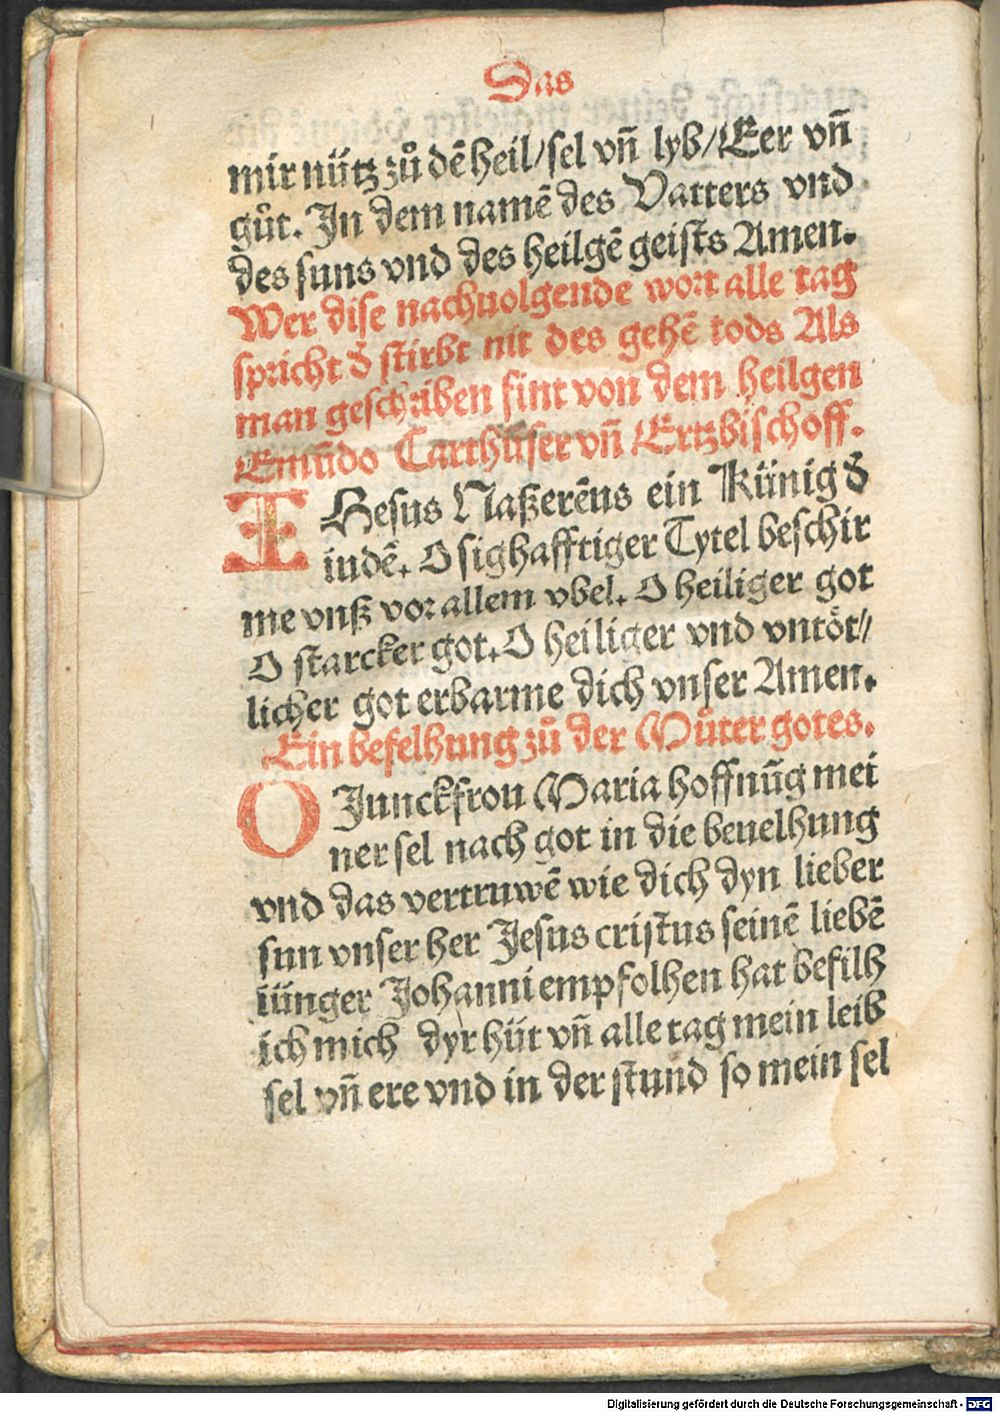 Das
mir nütz zů dē heil/sel vñ lyb/Eer vñ
gůt. In dem namē des Vatters vnd
des suns vnd des heilgē geists Amen.
Wer dise nachuolgende wort alle tag
spricht d̄ stirbt nit des gehē tods Als
man geschriben sint von dem heilgen
Emūdo Carthüser vñ Ertzbischoff.
IHesus Naßerēus ein Künig d̄
iudē. O sighafftiger Tytel beschir
me vnß vor allem vbel. O heiliger got
O starcker got. O heiliger vnd vntöt//
licher got erbarme dich vnser Amen.
Ein befelhung zů der Můter gotes.
O Junckfrou Maria hoffnūg mei
ner sel nach got in die beuelhung
vnd das vertruwē wie dich dyn lieber
sun vnser her Jesus cristus seinē liebē
iünger Johanni empfolhen hat befilh
ich mich dyr hüt vñ alle tag mein leib
sel vñ ere vnd in der stund so mein sel
Digitalisierung gefördert durch die Deutsche Forschungsgemeinschaft - DFG